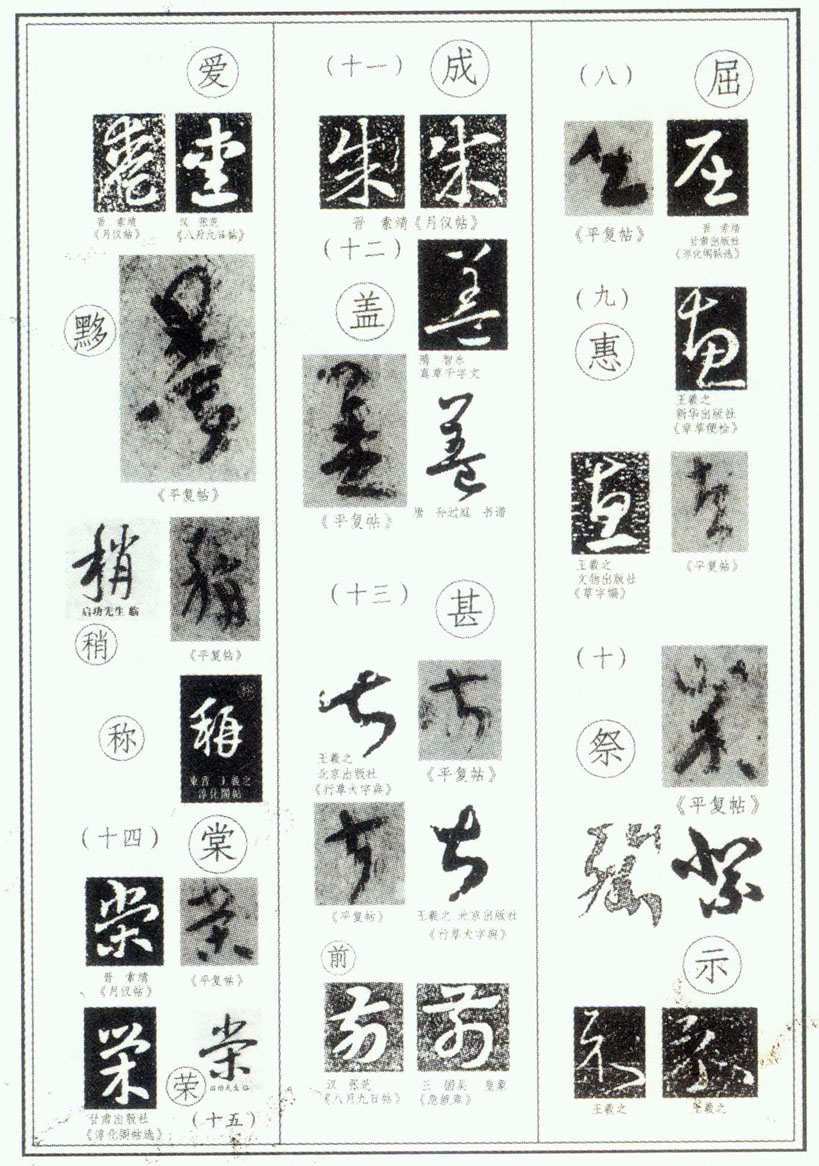 （八）
屈
《平复帖》
晋 索靖
甘肃出版社
《淳化阁帖选》
（九）
惠
王羲之
新华出版社
《章草便检》
王羲之
文物出版社
《草字编》
《平复帖》
（十）
祭
《平复帖》
示
王羲之
王羲之
（十一）
成
晋 索靖《月仪帖》
（十二）
盖
隋 智永
真草千字文
《平复帖》
唐 孙过庭 书谱
（十三）
甚
王羲之
北京出版社
《行草大字典》
《平复帖》
《平复帖》
王羲之 北京出版社
《行草大字典》
前
汉 张芝
《八月九日帖》
三国吴 皇象
《急就章》
爱
晋 索靖
《月仪帖》
汉 张芝
《八月九日帖》
黟
《平复帖》
启功先生 临
稍
《平复帖》
称
東晋 王羲之
淳化閣帖
（十四）
棠
晋 索靖
《月仪帖》
《平复帖》
荣
甘肃出版社
《淳化阁帖选》
启功先生 临
（十五）